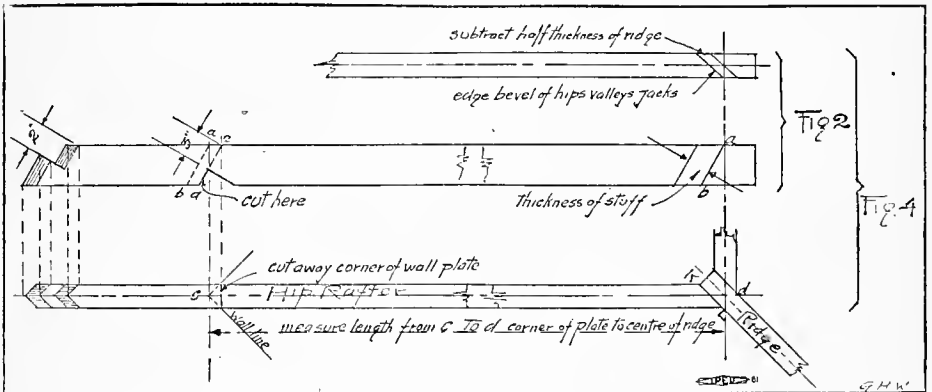 subtract half thickness of ridge
edge bevel of hips valleys jacks
Fig 2
2"
3"
a c
b d
cut here
thickness of stuff
a
b
Fig. 4
cut away corner of wall plate
c
Hip Rafter
wall line
measure length from C To d corner of plate to centre of ridge
K
d
L
Ridge
G H W